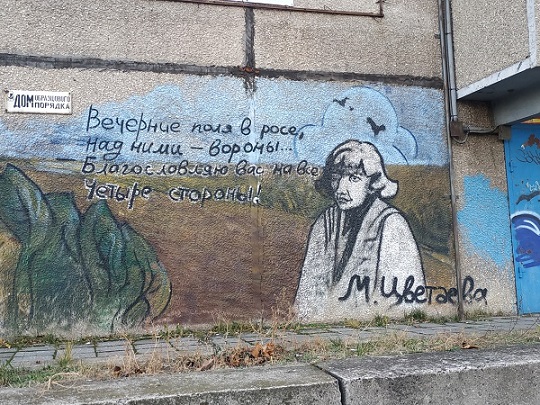 ДОМ ОБРАЗЦОВОГО
ПОРЯДКА
Вечерние поля в росе,
над ними – вороны...
Благословляю вас на все
четыре стороны!
М. Цветаева